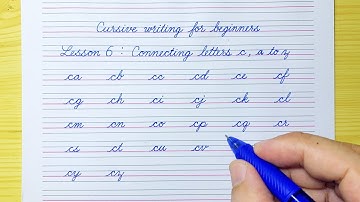 Cursive writing for beginners
Lesson 6 : Connecting letters c, a to z
ca cb cc cd ce cf
cg ch ci cj ck cl
cm cn co cp cq cr
cs ct cu cv
cy cz